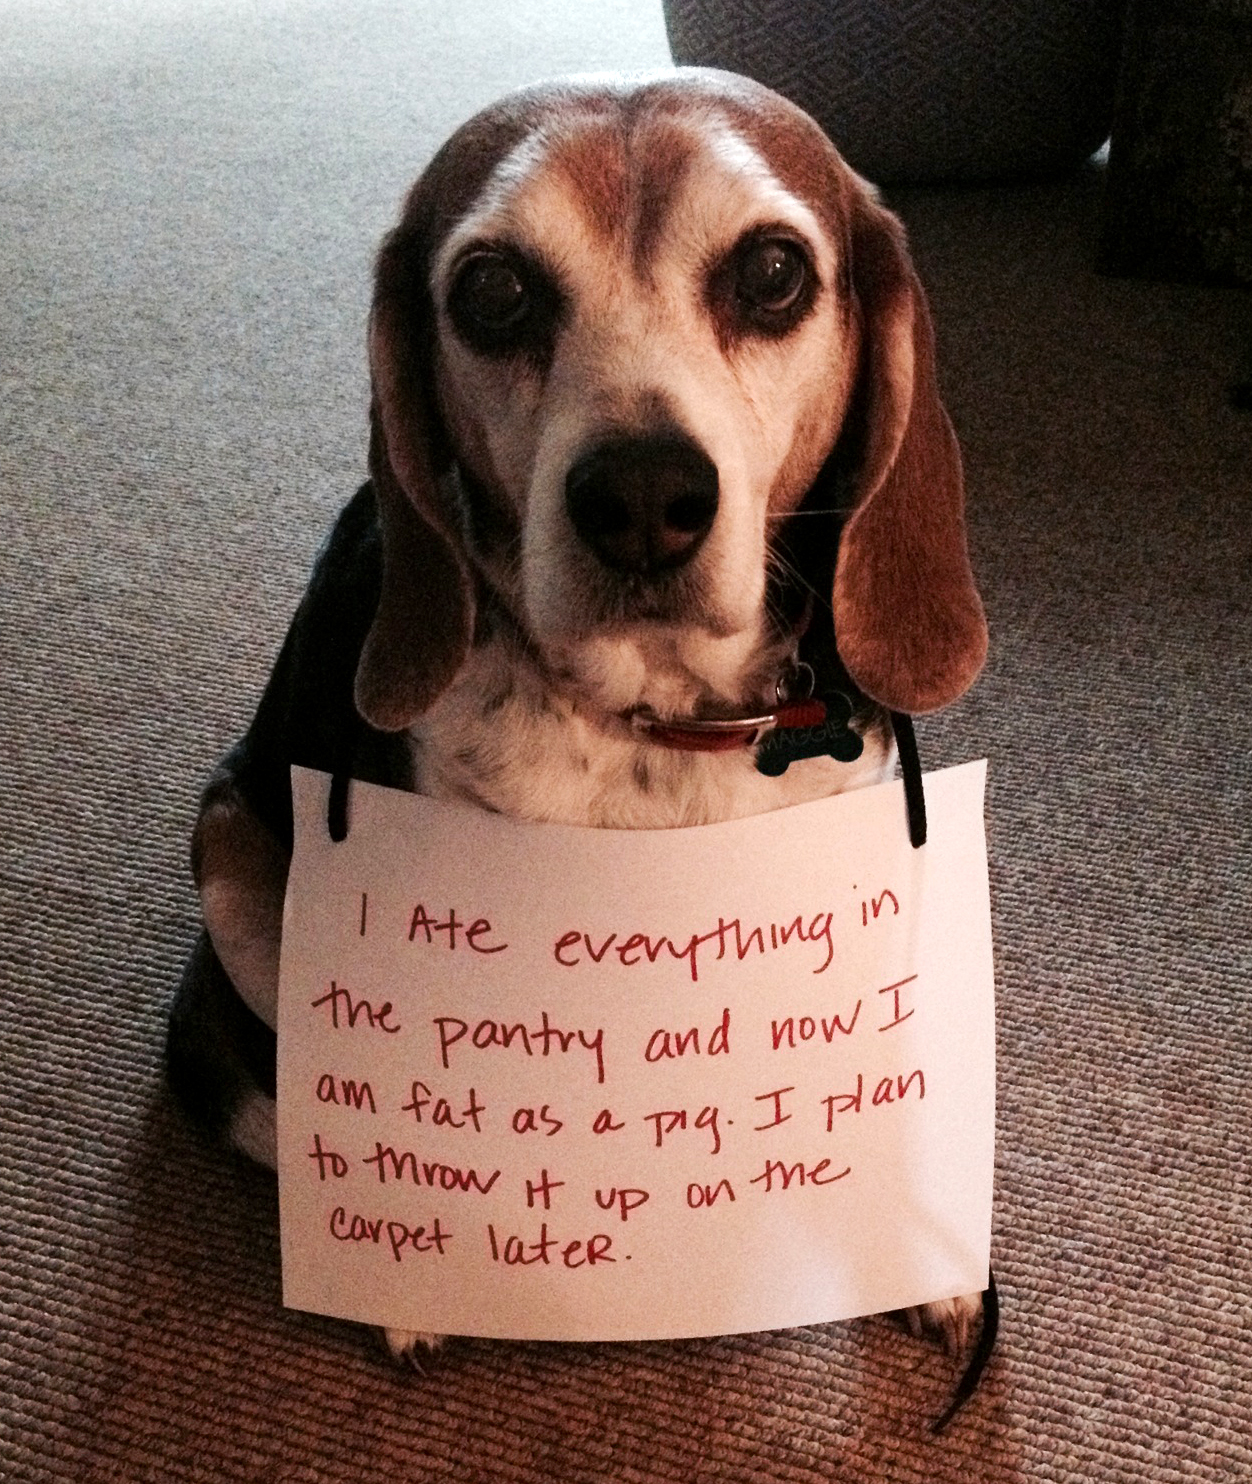 MAGGIE
I Ate everything in
the pantry and now I
am fat as a pig. I plan
to throw it up on the
carpet later.